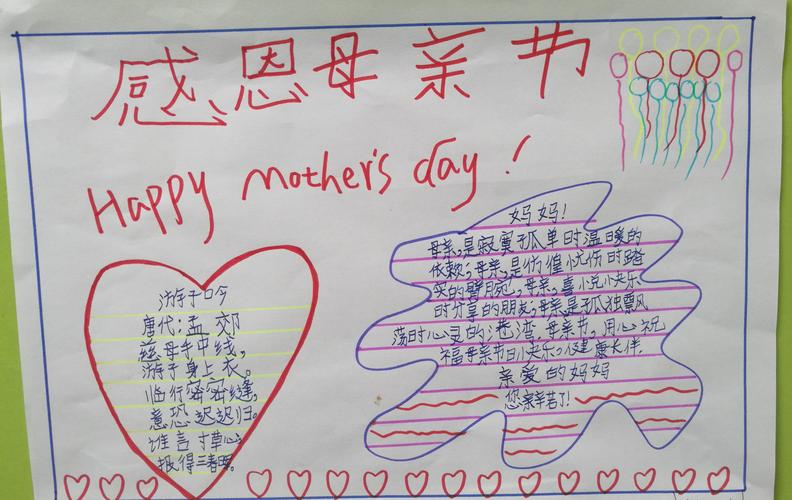 感恩母亲节
Happy mother's day!
游子吟
唐代:孟郊
慈母手中线,
游子身上衣。
临行密密缝,
意恐迟迟归。
谁言寸草心,
报得三春晖。
妈妈!
母亲,是寂寞孤单时温暖的
依赖,母亲,是彷徨忧伤时踏
实的臂腕!,母亲,喜悦快乐
时分享的朋友,母亲是孤独飘
荡时心灵的港湾,母亲节,用心祝
福母亲节日快乐,健康长伴.
亲爱的妈妈
您亲辛苦了!